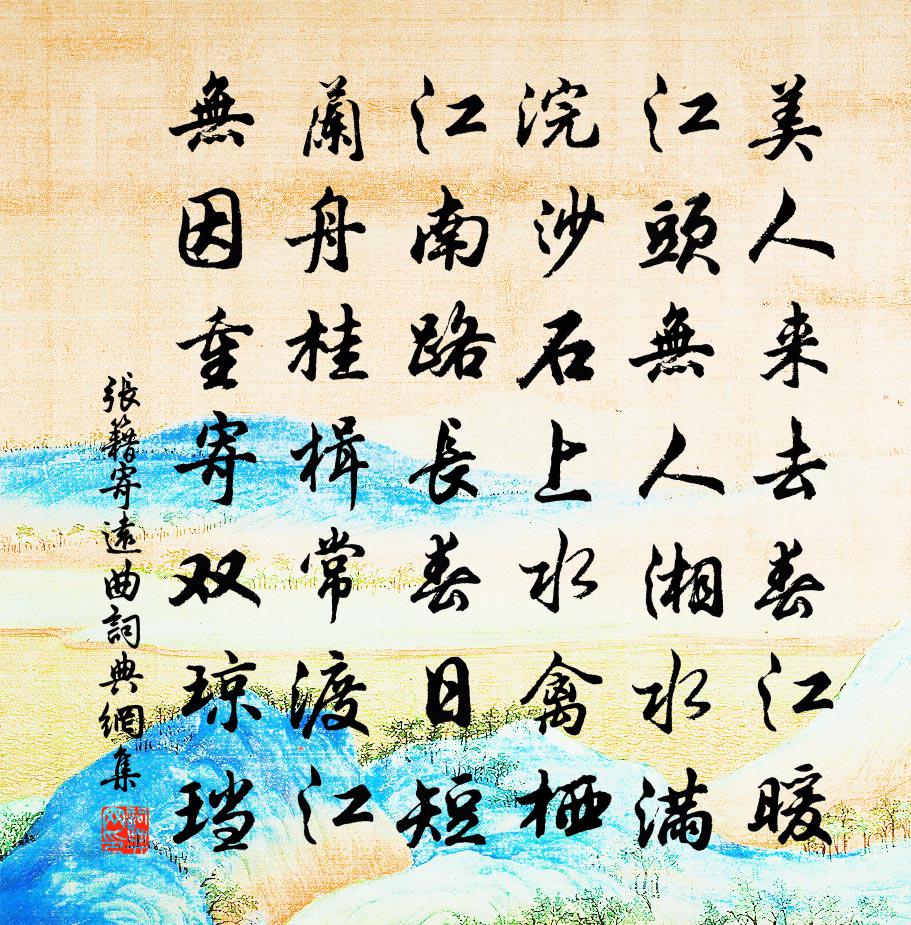 美人来去春江暖
江頭無人湘水滿
浣沙石上水禽栖
江南路長春日短
蘭舟桂楫常渡江
無因重寄双琼珰
張籍寄遠曲詞典網集